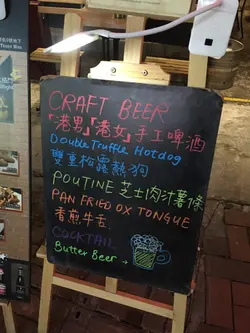 CRAFT BEER
「港男」「港女」手工啤酒
Double Truffle Hotdog
雙重松露熱狗
POUTINE 芝士肉汁薯條
PAN FRIED OX TONGUE
香煎牛舌
COCKTAIL
Butter Beer →